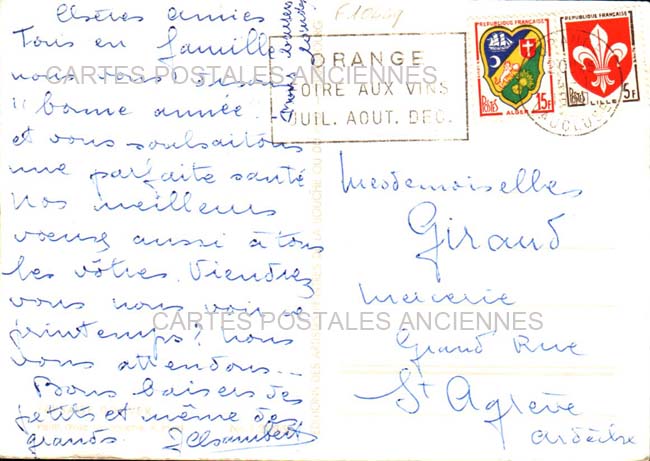 Chères amies
Tous en famille
nous vous disons
"bonne année"
et vous souhaitons
une parfaite santé
Nos meilleurs
vœux aussi à tous
les vôtres. Viendrez
vous nous voir ce
printemps? nous
vous attendons...
Bons baisers des
petits et même des
grands.
CARTES POSTALES ANCIENNES
CARTES POSTALES ANCIENNES
ORANGE
FOIRE AUX VINS
JUIL. AOUT. DEC.
REPUBLIQUE FRANÇAISE
POSTES
15F
ALGER
REPUBLIQUE FRANÇAISE
POSTES
5F
LILLE
VAUCLUSE
Mesdemoiselles
Giraud
mercerie
Grand Rue
St Agrève
Ardèche